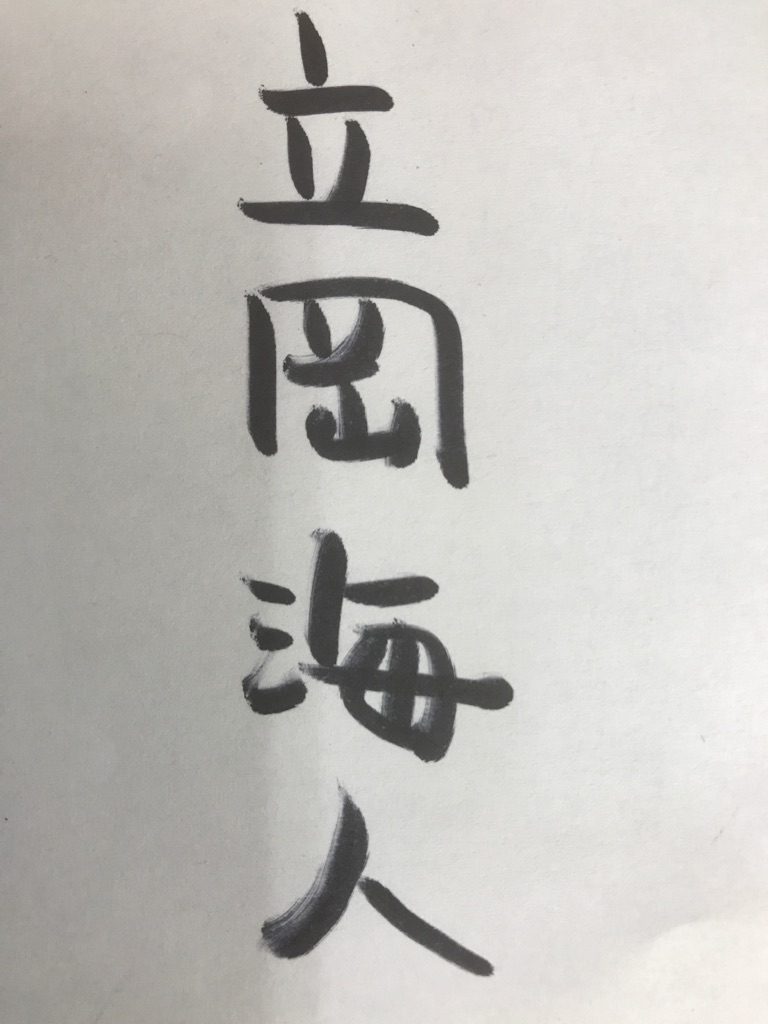 立岡海人